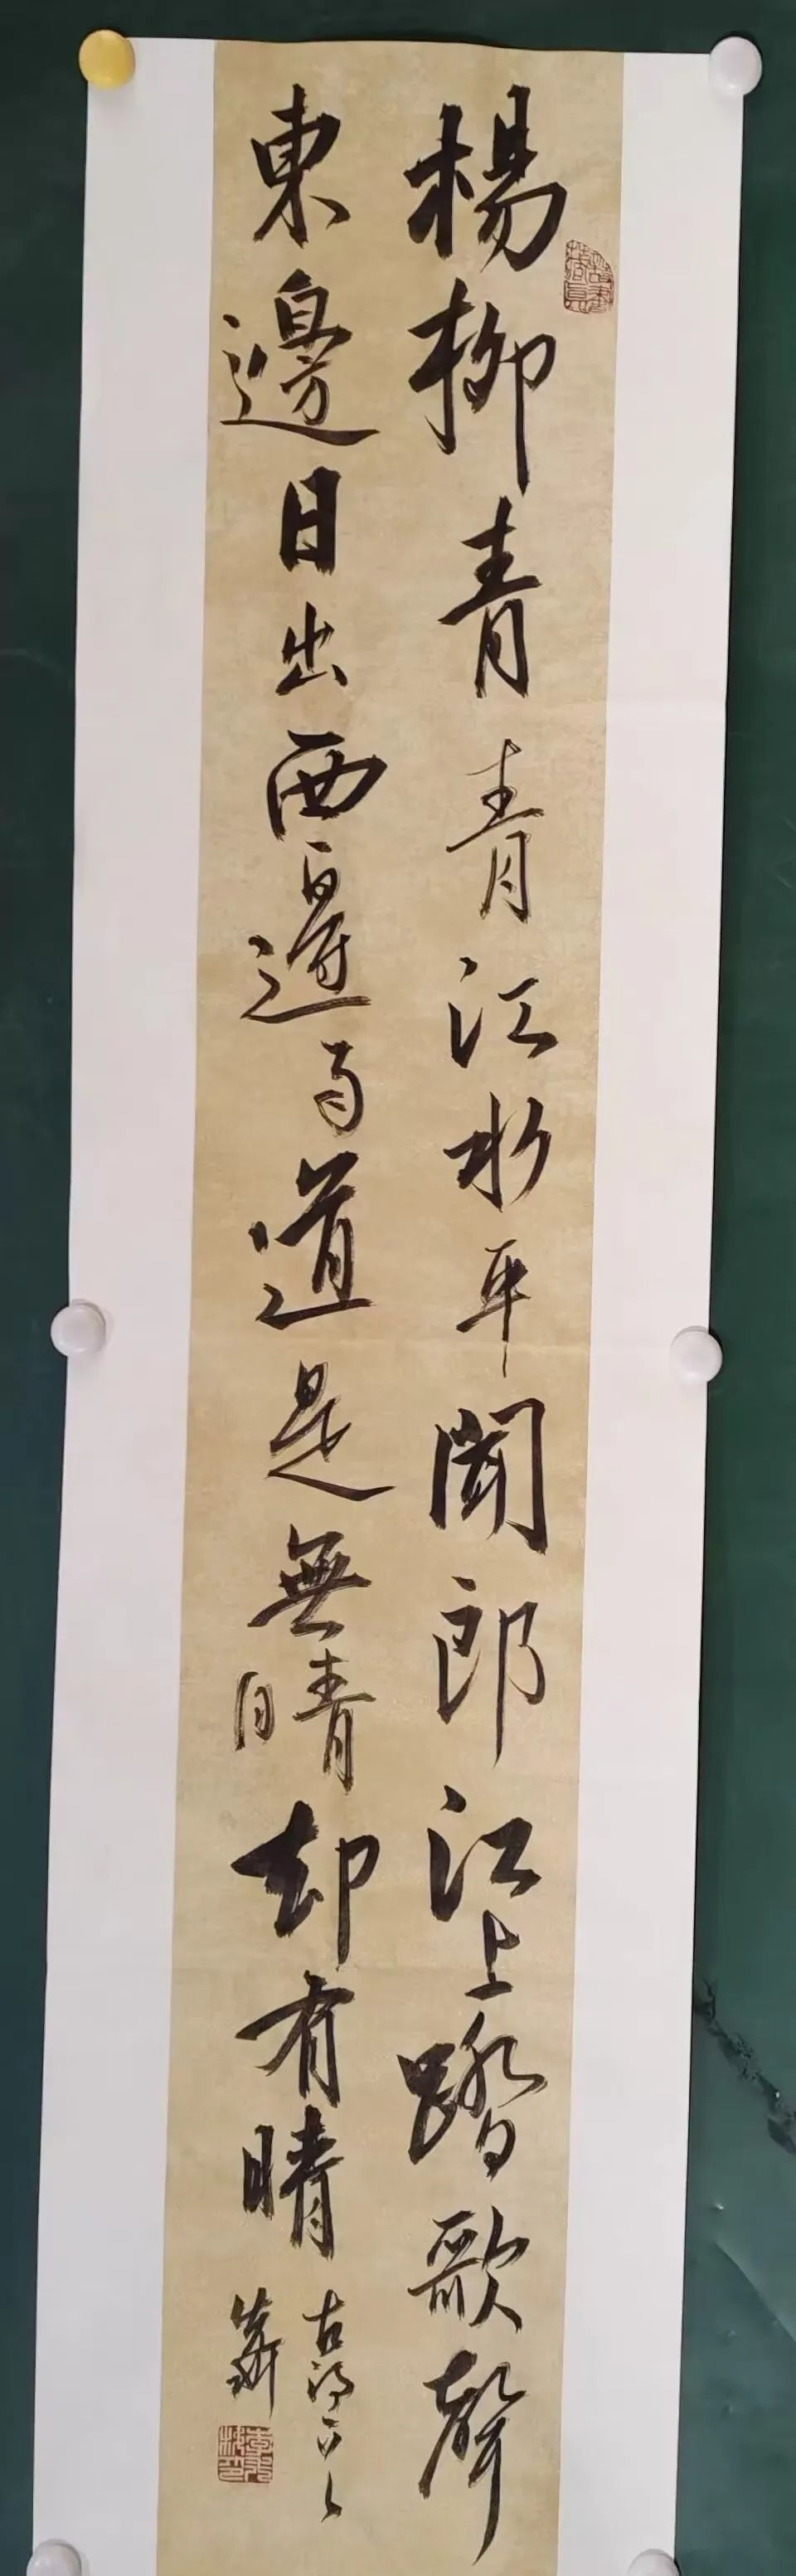 楊柳青青江水平聞郎江上踏歌聲
東邊日出西邊雨道是無晴却有晴
古詩一